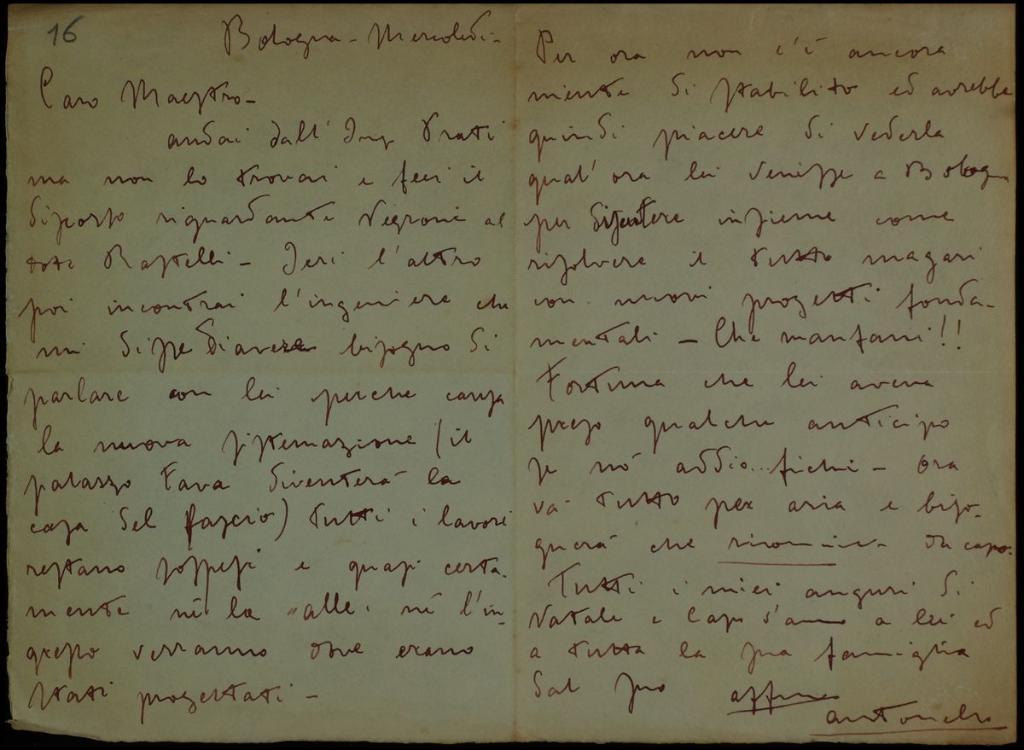 16
Bologna - Mercoledì -
Caro Maestro -
andai dall' Ing. Prati
ma non lo trovai e feci il
discorso riguardante Vegroni al
Rastelli - Ieri l'altro
poi incontrai l'ingeniere che
mi disse di avere bisogno di
parlare con lei perche causa
la nuova sistemazione (il
palazzo Fava diventerà la
casa del fascio) tutti i lavori
restano sospesi e quasi certa-
mente nè la nè l'in-
gresso verranno dove erano
stati progettati -
Per ora non c'è ancora
niente di stabilito ed avrebbe
quindi piacere di vederla
qual' ora lei venisse a Bologna
per discutere insieme come
risolvere il tutto magari
con nuovi progetti fonda-
mentali - Che manfani!!
Fortuna che lei aveva
preso qualche anticipo
se nò addio.. fichi - Ora
và tutto per aria e biso-
gnerà che ricominci da capo.
Tutti i miei auguri di
Natale e Capo d'anno a lei ed
a tutta la sua famiglia
dal suo affmo